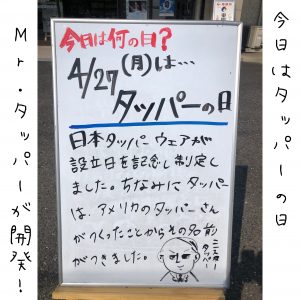 今日はタッパーの日
今日は何の日？
4/27(月)は…
タッパーの日
日本タッパーウェアが
設立日を記念し制定し
ました。ちなみにタッパー
は、アメリカのタッパーさん
がつくったことからその名前
がつきました。
ミスター
タッパー
Mr・タッパーが開発！